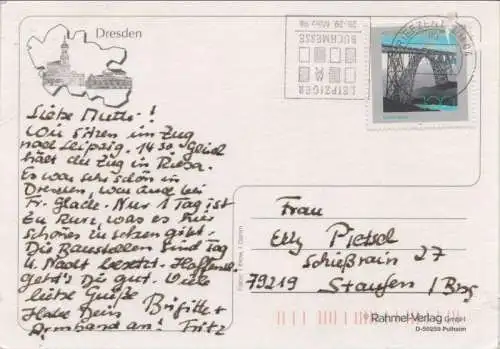 Dresden
Liebe Mutti!
Wir sitzen im Zug
nach Leipzig. 14 30. Gleich
hält der Zug in Riesa.
Es war sehr schön in
Dresden, war auch bei
Fr. Glade. Nur 1 Tag ist
zu kurz, was es hier
schönes zu sehen gibt.
Die Baustellen sind Tag
u. Nacht besetzt. Hoffentl.
geht's Dir gut. Viele
liebe Grüße Brigitte +
Habe Dein
Armband an! Fritz
LEIPZIGER
BUCHMESSE
26.-29. März 98
BRIEFZENTRUM 04
100
Frau
Elly Pietsch
Schießrain 27
79219 Staufen / Brsg
Rahmel-Verlag GmbH
D-50259 Pulheim